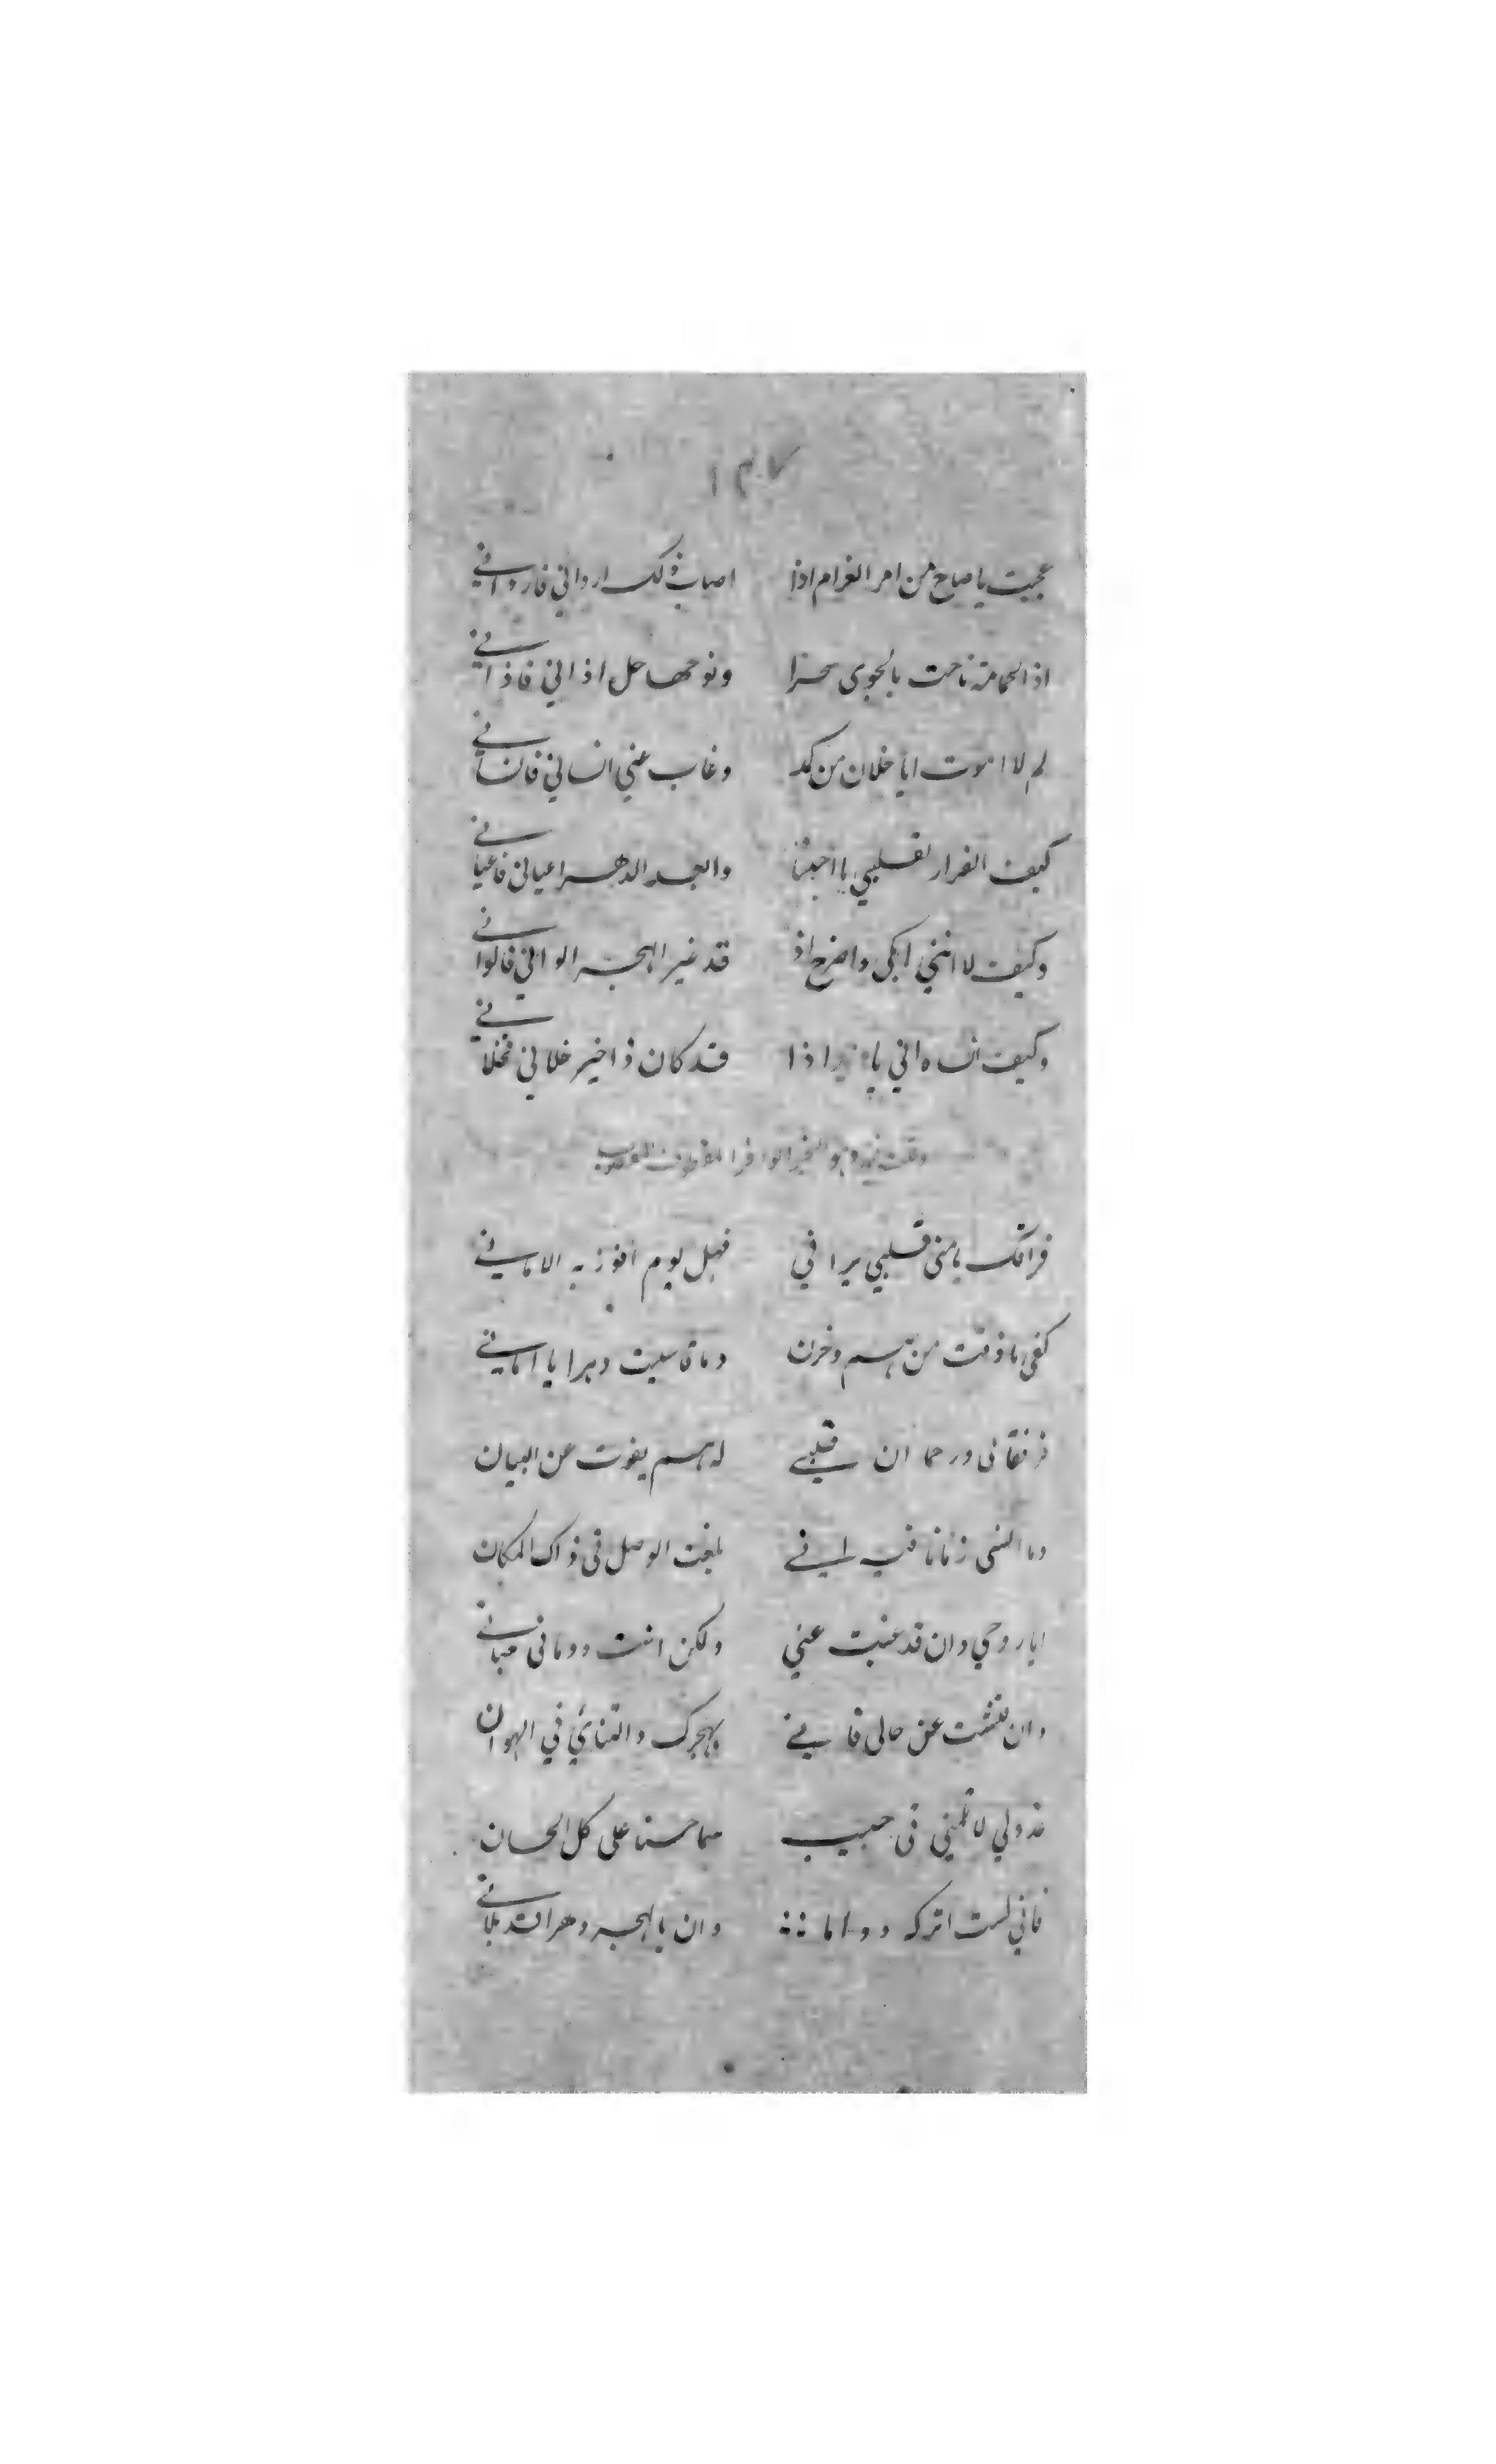 ١٣٧
عجبت يا صاح من امر الغرام اذا اصاب ذلك ارداني فارداني
اذا الحمامة ناحت بالجوى سحرا ونوحها حل اذاني فاذاني
لم لا اموت ايا خلان من كمد وغاب عني انساني فانساني
كيف القرار لقلبي يا احبتنا والبعد الدهر اعياني فاعياني
وكيف لا انثني ابكي واصرخ اذ قد غير الهجر الواني فالواني
وكيف انساه اني يا اذا قد كان ذا خير خلاني فخلاني
وقلت فيه وهو البحر الوافر المقطوف
فراقك يا منى قلبي براني فهل يوم افوز به الاماني
كفى ما ذقت من هم وحزن وما قاسيت دهرا يا اماني
فرفقا بى ورحما ان قلبي له هم يفوت عن البيان
وما انسى زمانا فيه اني بلغت الوصل فى ذاك المكان
ايا روحي وان قد غبت عني ولكن انت دوما فى جناني
وان فتشت عن حالى فاني بهجرك والتنائي في الهوان
عذولي لا تلمني فى حبيب سما حسنا على كل الحسان
فاني لست اتركه دواما وان بالهجر دهرا قد بلاني